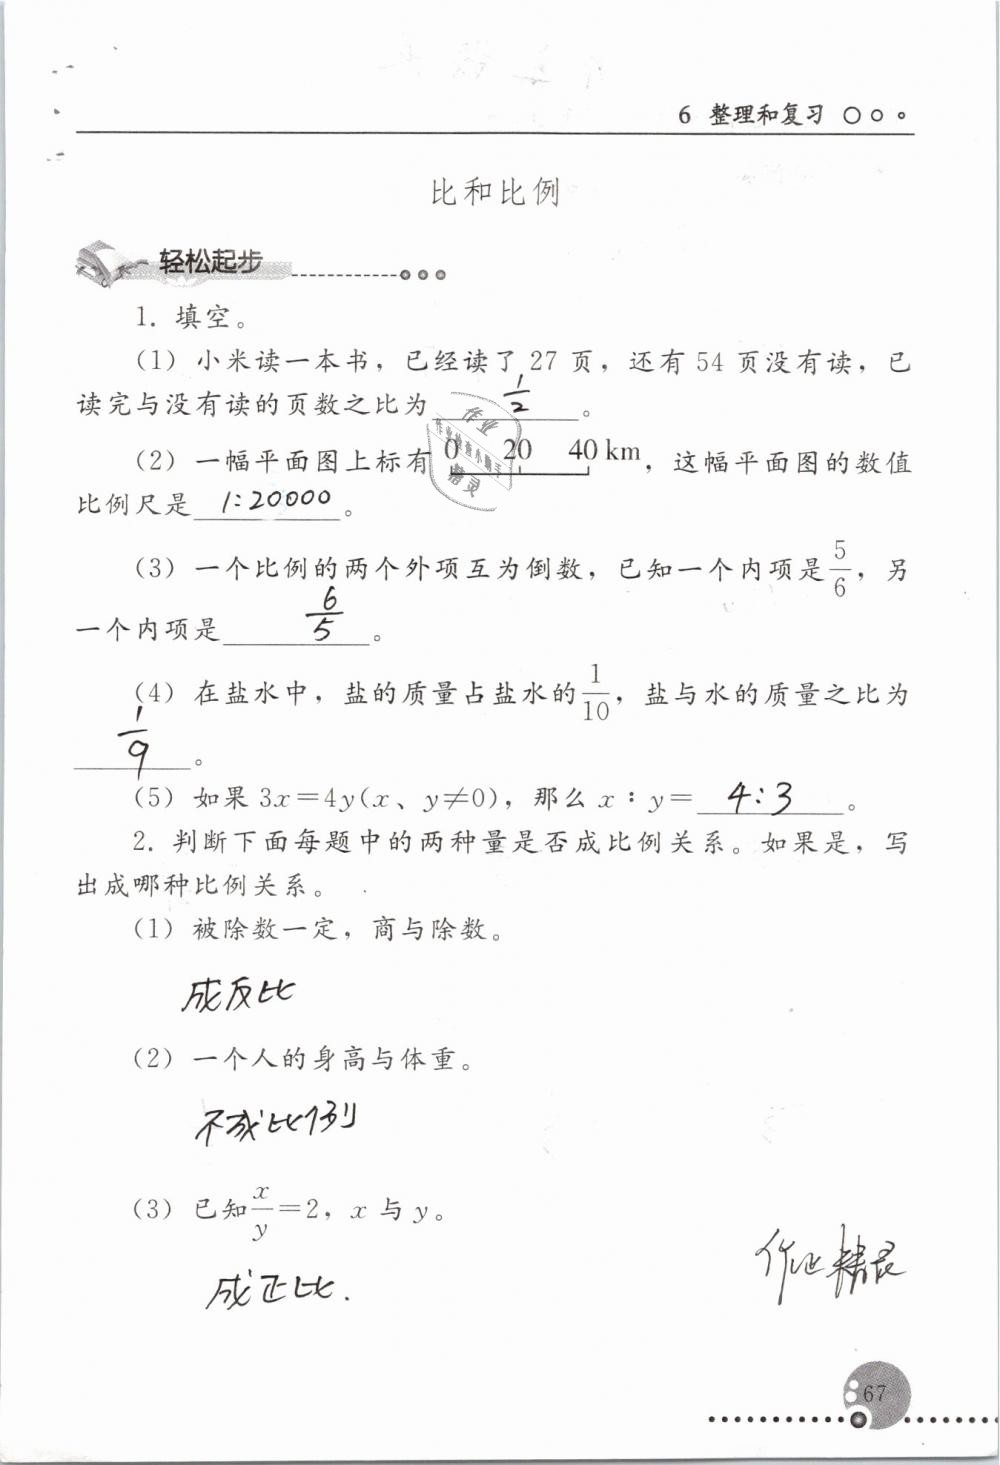 6 整理和复习
比和比例
轻松起步
1. 填空。
(1) 小米读一本书，已经读了 27 页，还有 54 页没有读，已
读完与没有读的页数之比为 1/2 。
(2) 一幅平面图上标有 0 20 40 km，这幅平面图的数值
比例尺是 1:20000 。
(3) 一个比例的两个外项互为倒数，已知一个内项是 5/6，另
一个内项是 6/5 。
(4) 在盐水中，盐的质量占盐水的 1/10，盐与水的质量之比为
1/9 。
(5) 如果 3x＝4y(x、y≠0)，那么 x∶y＝ 4:3 。
2. 判断下面每题中的两种量是否成比例关系。如果是，写
出成哪种比例关系。
(1) 被除数一定，商与除数。
成反比
(2) 一个人的身高与体重。
不成比例
(3) 已知 x/y＝2，x 与 y。
成正比.
作业精灵
67
作业
作业检查小助手
精灵